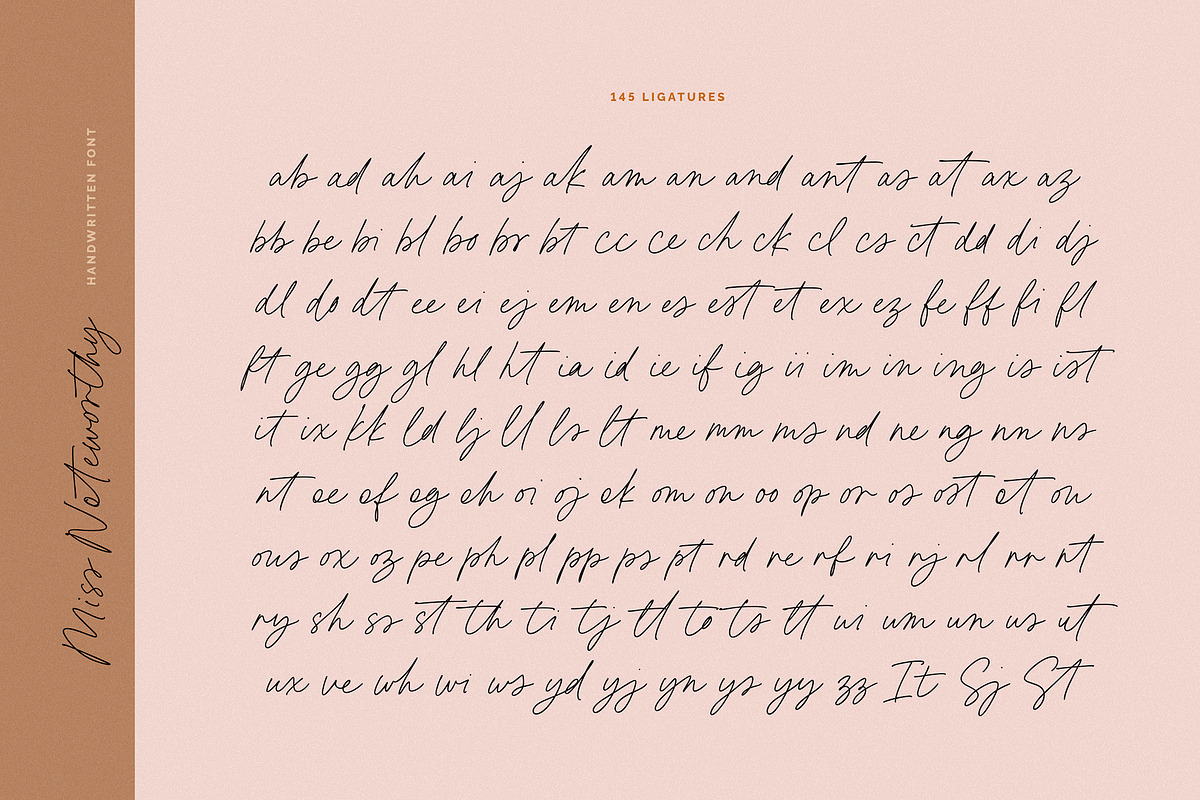 HANDWRITTEN FONT
Miss Noteworthy
145 LIGATURES
ab ad ah ai aj ak am an and ant as at ax az
bb be bi bl bo br bt cc ce ch ck cl cs ct dd di dj
dl do dt ee ei ej em en es est et ex ez fe ff fi fl
ft ge gg gl hl ht ia id ie if ig ii im in ing is ist
it ix kk ld lj ll ls lt me mm ms nd ne ng nn ns
nt oe of og oh oi oj ok om on oo op or os ost ot ou
ous ox oz pe ph pl pp ps pt rd re rf ri rj rl rr rt
ry sh ss st th ti tj tl to ts tt ui um un us ut
ux ve wh wi ws yd yj yn ys yy zz It Sj St